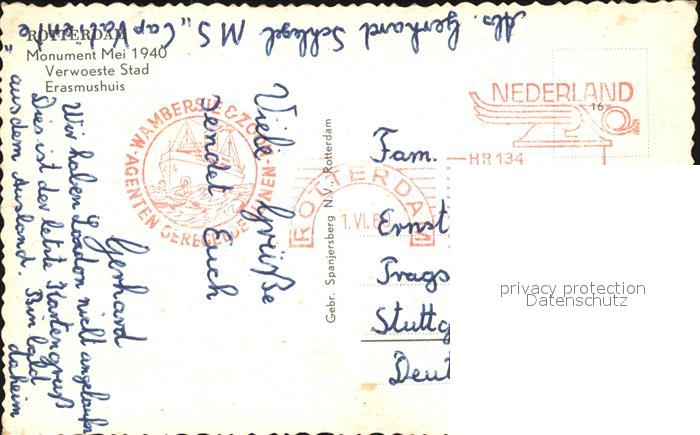 ROTTERDAM
Monument Mei 1940
Verwoeste Stad
Erasmushuis
Abs. Gerhard Schlegel MS „Cap Valiente"
Viele Grüße
sendet Euch
Gerhard
Wir haben London nicht angelaufen
Dies ist der letzte Kartengruß
aus dem Ausland. Bin bald
daheim
WAMBERSIE & ZOON
AGENTEN GEREGELDE LIJNEN
ROTTERDAM
1.VI.6
NEDERLAND
16
HR 134
Gebr. Spanjersberg N.V., Rotterdam
Fam.
Ernst
Prags
Stuttg
Deut
privacy protection
Datenschutz